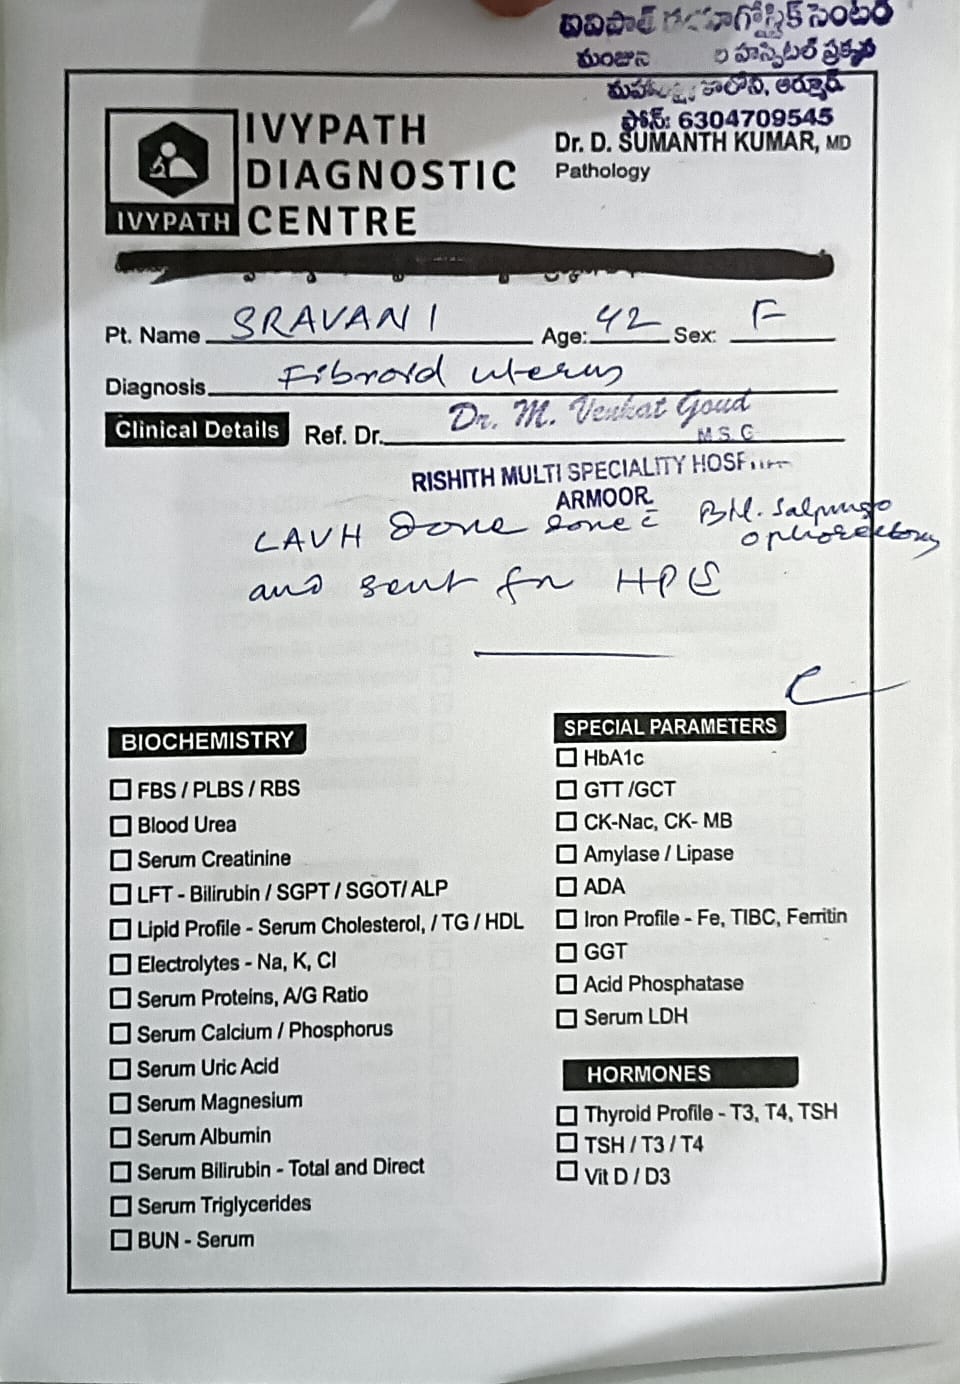 డయాగ్నోస్టిక్ సెంటర్
హాస్పిటల్ ప్రక్కన
కాలోని, ఆర్మూర్
ఫోన్: 6304709545
IVYPATH
DIAGNOSTIC
CENTRE
IVYPATH
Dr. D. SUMANTH KUMAR, MD
Pathology
Pt. Name SRAVANI Age: 42 Sex: F
Diagnosis Fibroid uterus
Clinical Details Ref. Dr. Dr. M. Venkat Goud
M S. G
RISHITH MULTI SPECIALITY
ARMOOR.
LAVH done done c̄ B/L. Salpingo
ophorectomy
and sent for HPE
BIOCHEMISTRY
FBS / PLBS / RBS
Blood Urea
Serum Creatinine
LFT - Bilirubin / SGPT / SGOT/ ALP
Lipid Profile - Serum Cholesterol, / TG / HDL
Electrolytes - Na, K, Cl
Serum Proteins, A/G Ratio
Serum Calcium / Phosphorus
Serum Uric Acid
Serum Magnesium
Serum Albumin
Serum Bilirubin - Total and Direct
Serum Triglycerides
BUN - Serum
SPECIAL PARAMETERS
HbA1c
GTT /GCT
CK-Nac, CK- MB
Amylase / Lipase
ADA
Iron Profile - Fe, TIBC, Ferritin
GGT
Acid Phosphatase
Serum LDH
HORMONES
Thyroid Profile - T3, T4, TSH
TSH / T3 / T4
Vit D / D3